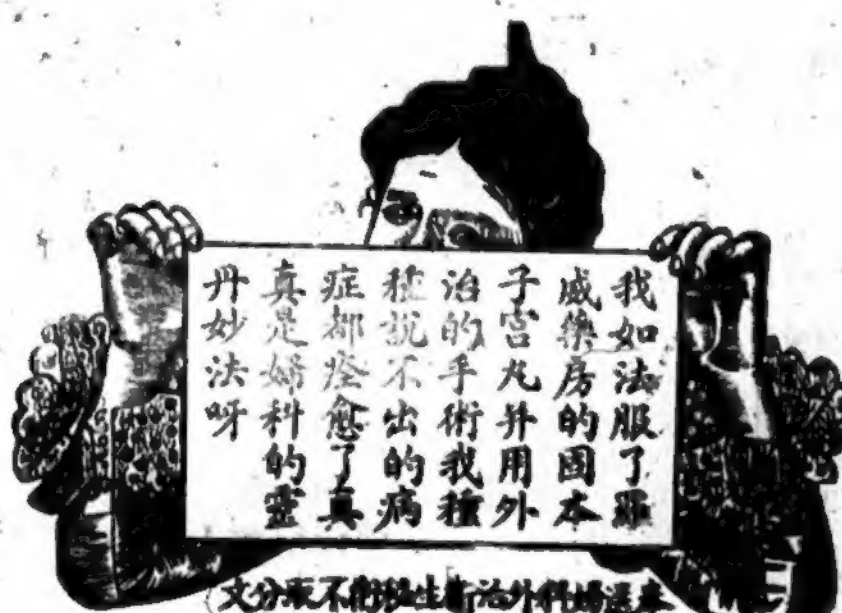 我如法服了羅
威藥房的固本
子宮丸幷用外
治的手術我種
種說不出的病
症都痊愈了真
真是婦科的靈
丹妙法呀
婦科外治衛生 不取分文